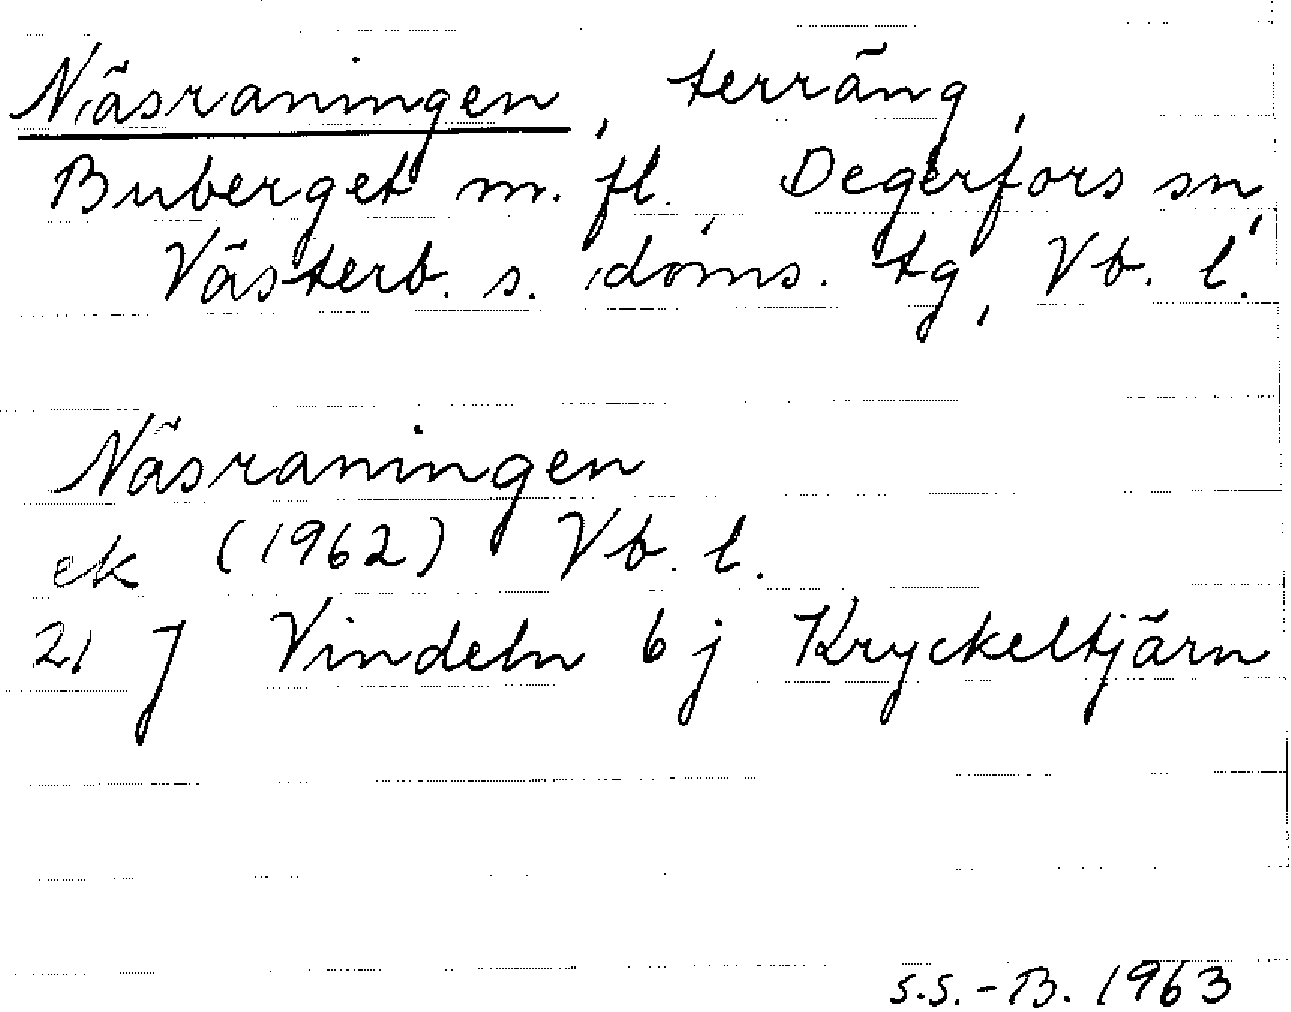 Näsraningen, terräng,
Buberget m. fl., Degerfors sn,
Västerb. s. doms. tg, Vb. l.
Näsraningen
ek (1962) Vb. l.
21 J Vindeln 6 j Kryckeltjärn
S.S.-B. 1963